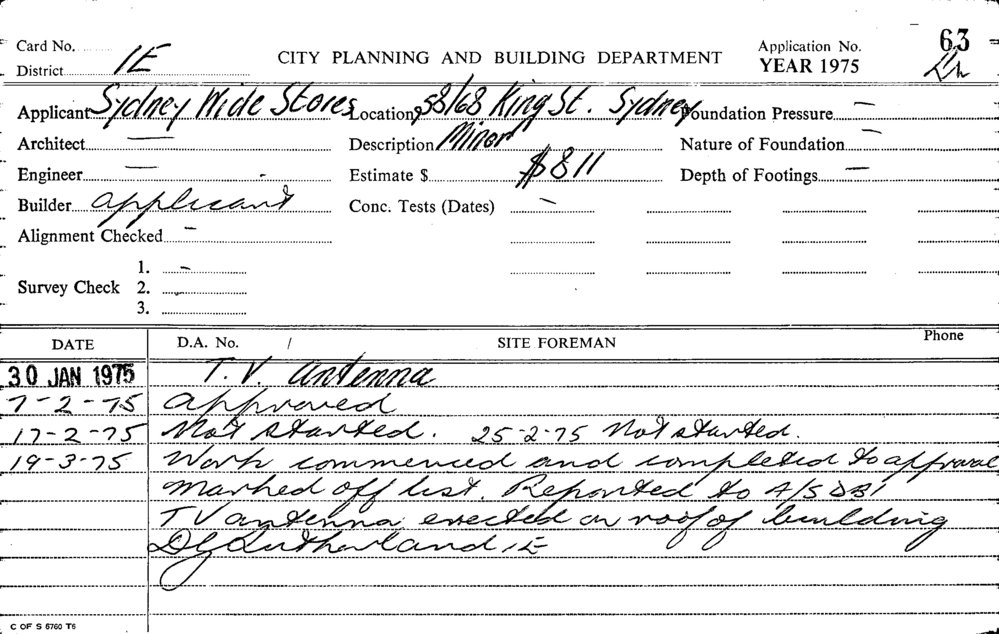 Card No.
District 1E
CITY PLANNING AND BUILDING DEPARTMENT
Application No. 63
YEAR 1975
Applicant Sydney Wide Stores Location 58/68 King St. Sydney Foundation Pressure —
Architect — Description Minor Nature of Foundation —
Engineer — Estimate $ $811 Depth of Footings —
Builder applicant Conc. Tests (Dates) —
Alignment Checked —
Survey Check 1. —
2.
3.
DATE D.A. No. / SITE FOREMAN Phone
30 JAN 1975 T.V. antenna
7-2-75 approved
17-2-75 Not started. 25-2-75 Not started.
19-3-75 Work commenced and completed to approval
Marked off list. Reported to A/SDBI
TV antenna erected on roof of building
DG Sutherland 1E
C OF S 5760 T5